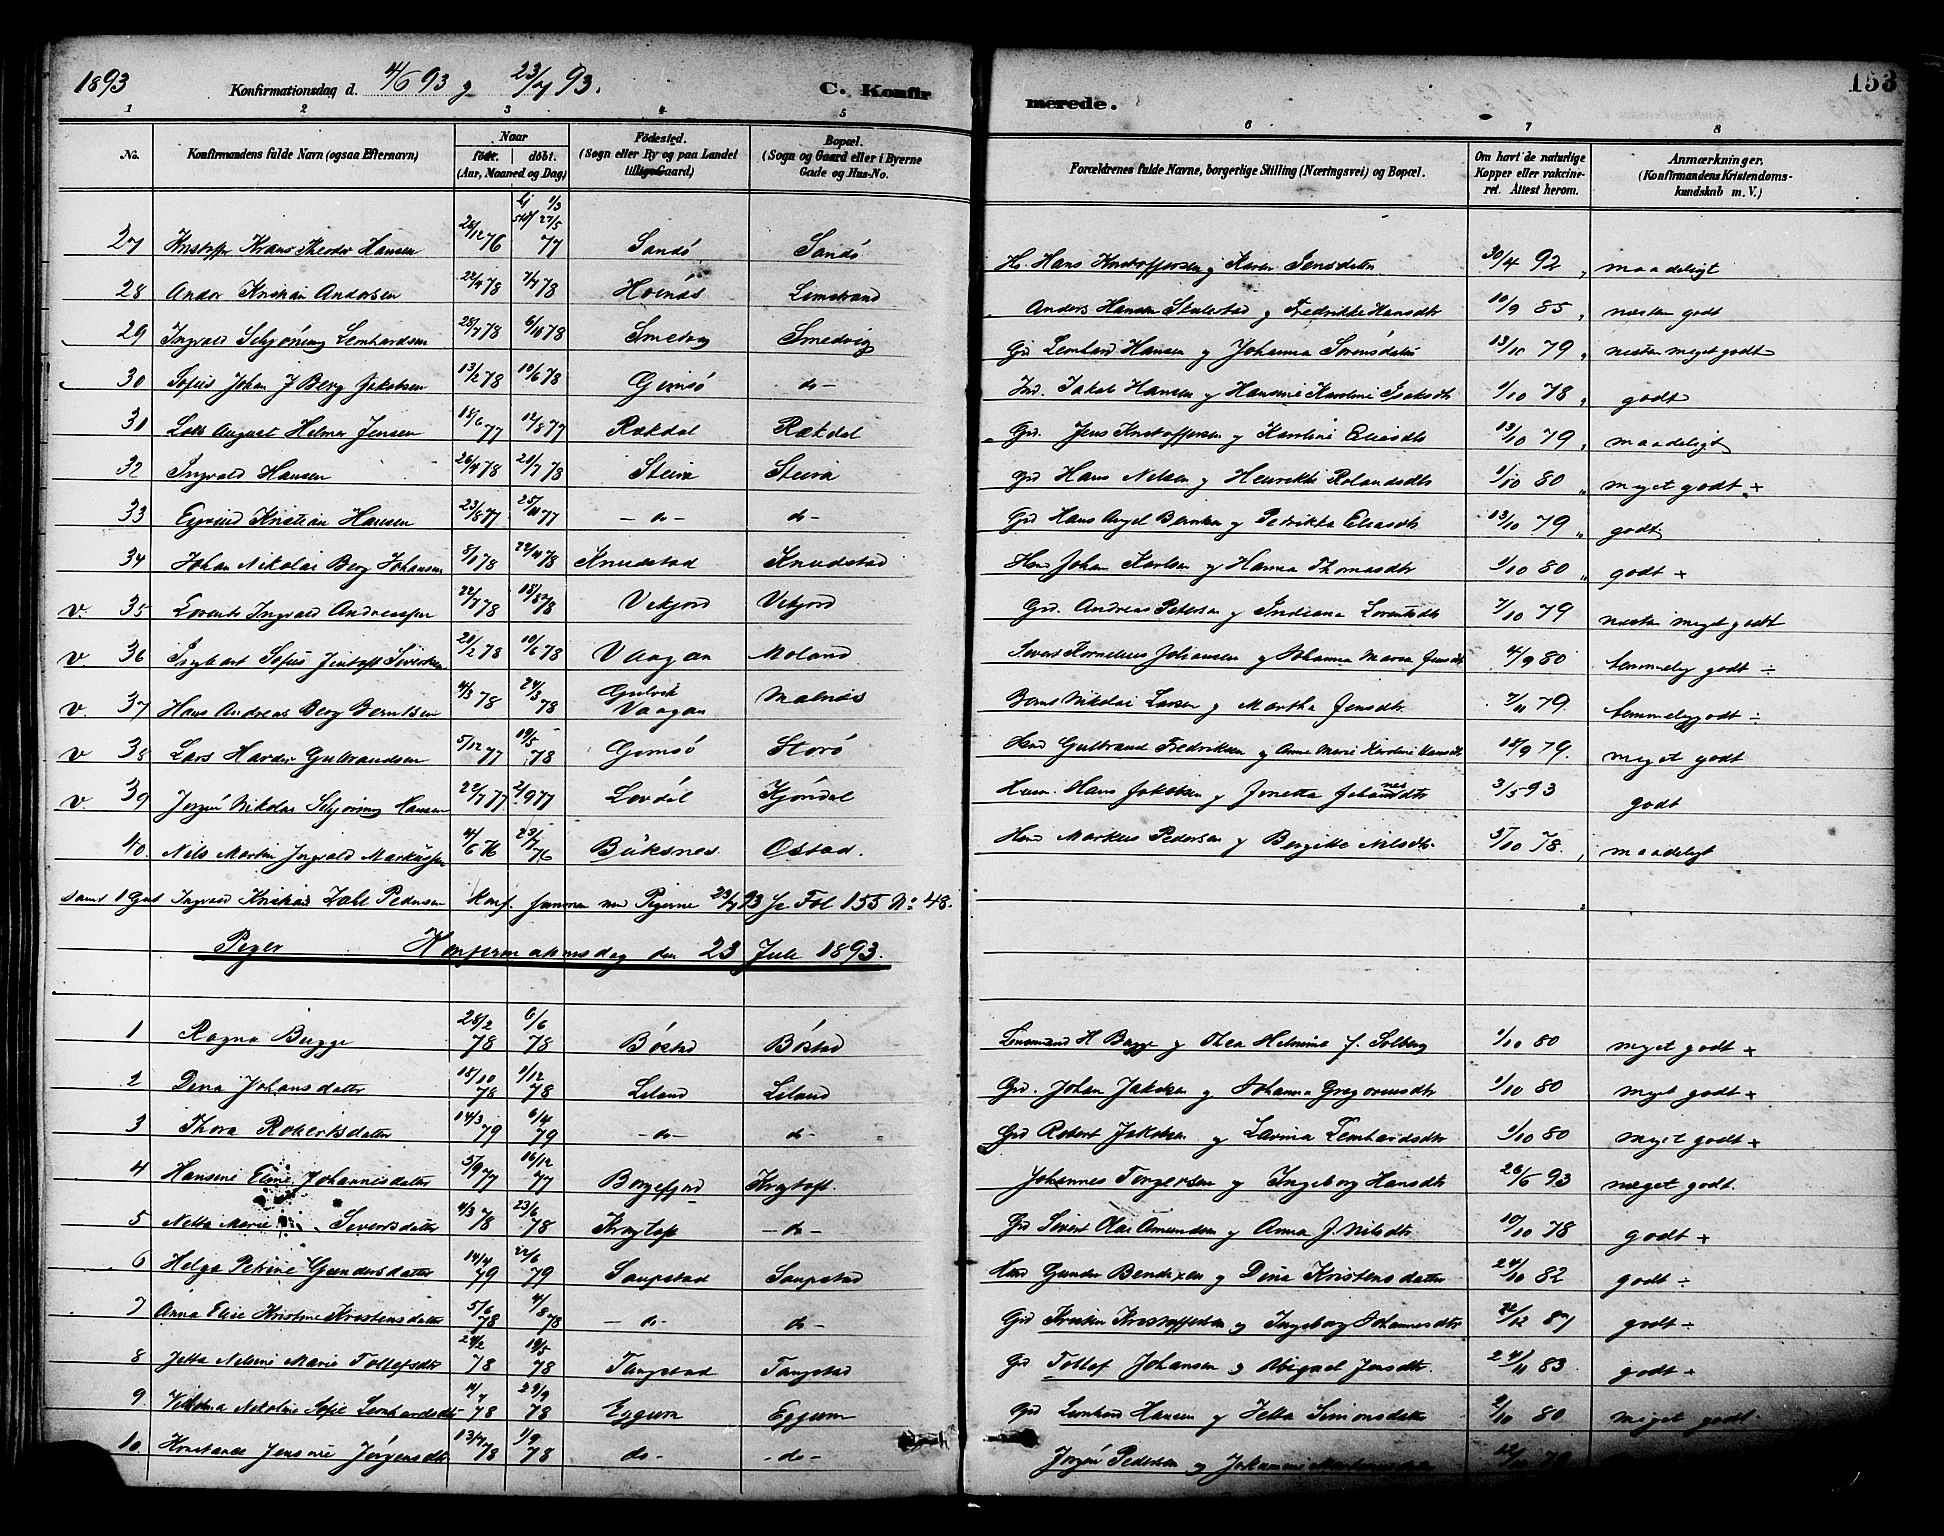 1893 Konfirmationsdag d. 4/6 93 g 23/7 93. C. Konfir merede. 153
1 2 3 4 5 6 7 8
No. Konfirmandens fulde Navn (ogsaa Efternavn) Naar født. døbt. (Aar, Maaned og Dag) Fødested. (Sogn eller By og paa Landet tillige Gaard) Bopæl. (Sogn og Gaard eller i Byerne Gade og Hus-No. Forældrenes fulde Navne, borgerlige Stilling (Næringsvei) og Bopæl. Om havt de naturlige Kopper eller vakcineret. Attest herom. Anmærkninger. (Konfirmandens Kristendomskundskab m. V.)
27 Hansen 26/12 76 77 Sandö Sandö Hans Kristoffersen g Karen Jensdatter 30/4 92 maadeligt
28 Andor Kristian Andersen 78 78 Hornæs Limstrand Anders Hansen g Fredrikke Hansdtr 10/9 85 næsten godt
29 Ingvald Schjöning Lenhardsen 28/7 78 6/10 78 Smedvig Smedvig Grd Lenhard Hansen g Johanna Sörensdatter 13/10 79 nesten meget godt
30 Sofus Johan J Berg Jakobsen 13/2 78 10/6 78 Gimsö do- Ind. Jakob Hansen g Hansine Karoline Isaksdtr 1/10 78 godt
31 August Helmer Jensen 18/6 77 12/8 77 Rækdal Rækdal Grd. Jens Kristoffersen g Karoline Eliasdtr 13/10 79 maadeligt
32 Ingvald Hansen 26/4 78 21/7 78 Steira Steira Grd Hans Nilsen g Henrikke Rolandsdtr 1/10 80 meget godt +
33 Eyvind Kristian Hansen 23/8 77 25/11 77 - do - do- Grd Hans Angel Berntsen g Petrikka Eliasdtr 13/10 79 godt
34 Johan Nikolai Berg Johansen 78 78 Knudstad Knudstad Hmd Johan Karlsen g Hanna Thomasdtr 1/10 80 godt +
v. 35 Lorents Ingvald Andreassen 22/7 78 78 Vikjord Vikjord Grd. Andreas Petersen g Indiana Lorentsdtr 7/10 79 næsten meget godt
v. 36 Ingbart Sofus Jentoft Sivertsen 21/2 78 10/6 78 Vaagan Moland Sivert Kornelius Johansen g Johanna Maria Jensdtr 4/9 80 temmelig godt ÷
v. 37 Hans Andreas Berg Berntsen 4/3 78 24/3 78 Gulvik Vaagan Malnæs Nikolai Larsen g Martha Jensdtr. 7/11 79. temmelig godt ÷
v 38 Lars Harder Gulbrandsen 5/12 77 19/5 78 Gimsö Storö Hmd Gulbrand Fredriksen g Anne Marie Karoline Hansdtr 18/9 79. meget godt
v. 39 Jörgen Nikolai Schjöning Hansen 22/7 77 2/9 77 Lovdal Kjöndal Husm. Hans Jakobsen g Jonetta Johannesdtr 3/5 93 godt
40. Nils Martin Ingvald Markussen 4/6 76 23/7 76 Buksnes Ostad. Hmd Markus Pedersen g Bergitte Nilsdtr. 5/10 78. maadeligt
samt 1 Gut Ingvald Kristian Pedersen Konf. sammen med Pigerne 23/7 93 Se Fol 155 No 48.
Piger Konfirmationsdag den 23 Juli 1893.
1 Ragna Bugge 28/2 78 6/6 78 Böstad Böstad Lensmand H Bugge g Thea Helmine f. Solberg 1/10 80 meget godt +
2 Dina Johansdatter 18/10 78 1/12 78 Liland Liland Grd. Johan Jakobsen g Johanna Gregoriusdtr 1/10 80 meget godt +
3 Thora Robertsdatter 14/3 79 6/4 79 - do - do- Grd Robert Jakobsen g Lavina Lenhardsdtr 1/10 80 meget godt +
4 Hansine Eline Johannisdatter 5/9 77 16/12 77 Borgefjord Krystoft. Johannes Torgersen g Ingeborg Hansdtr 26/6 93 meget godt.
5 Netta Marie Sivertsdatter 4/3 78 23/6 78 Krøgtoft - do - Grd Sivert Olai Amundsen g Anna J. Nilsdtr 10/10 78 godt +
6 Helga Petrine Gundersdatter 14/4 79 22/6 79 Saupstad Saupstad Hmd Gunder Bendixen g Dina Kristensdatter 24/10 82 godt ÷
7 Anna Elise Kristine Kristensdatter 5/6 78 4/8 78 - do - do- Grd Kristen Kristoffersen g Ingeborg Johannesdtr 22/12 87 godt ÷
8 Jetta Nilsine Marie Tollefsdtr 24/2 78 19/5 78 Tangstad Tangstad Grd Tollef Johansen g Abigael Jensdtr. 24/11 83 godt +
9 Vilhelma Nikoline Sofie Lenhardsdtr 11/7 78 29/9 78 Eggum Eggum Grd Lenhard Hansen g Jetta Simonsdatter 2/10 80 meget godt.
10. Konstance Jensine Jörgensdtr 13/7 78 1/9 78 do- - do- Jörgen Pedersen g 79